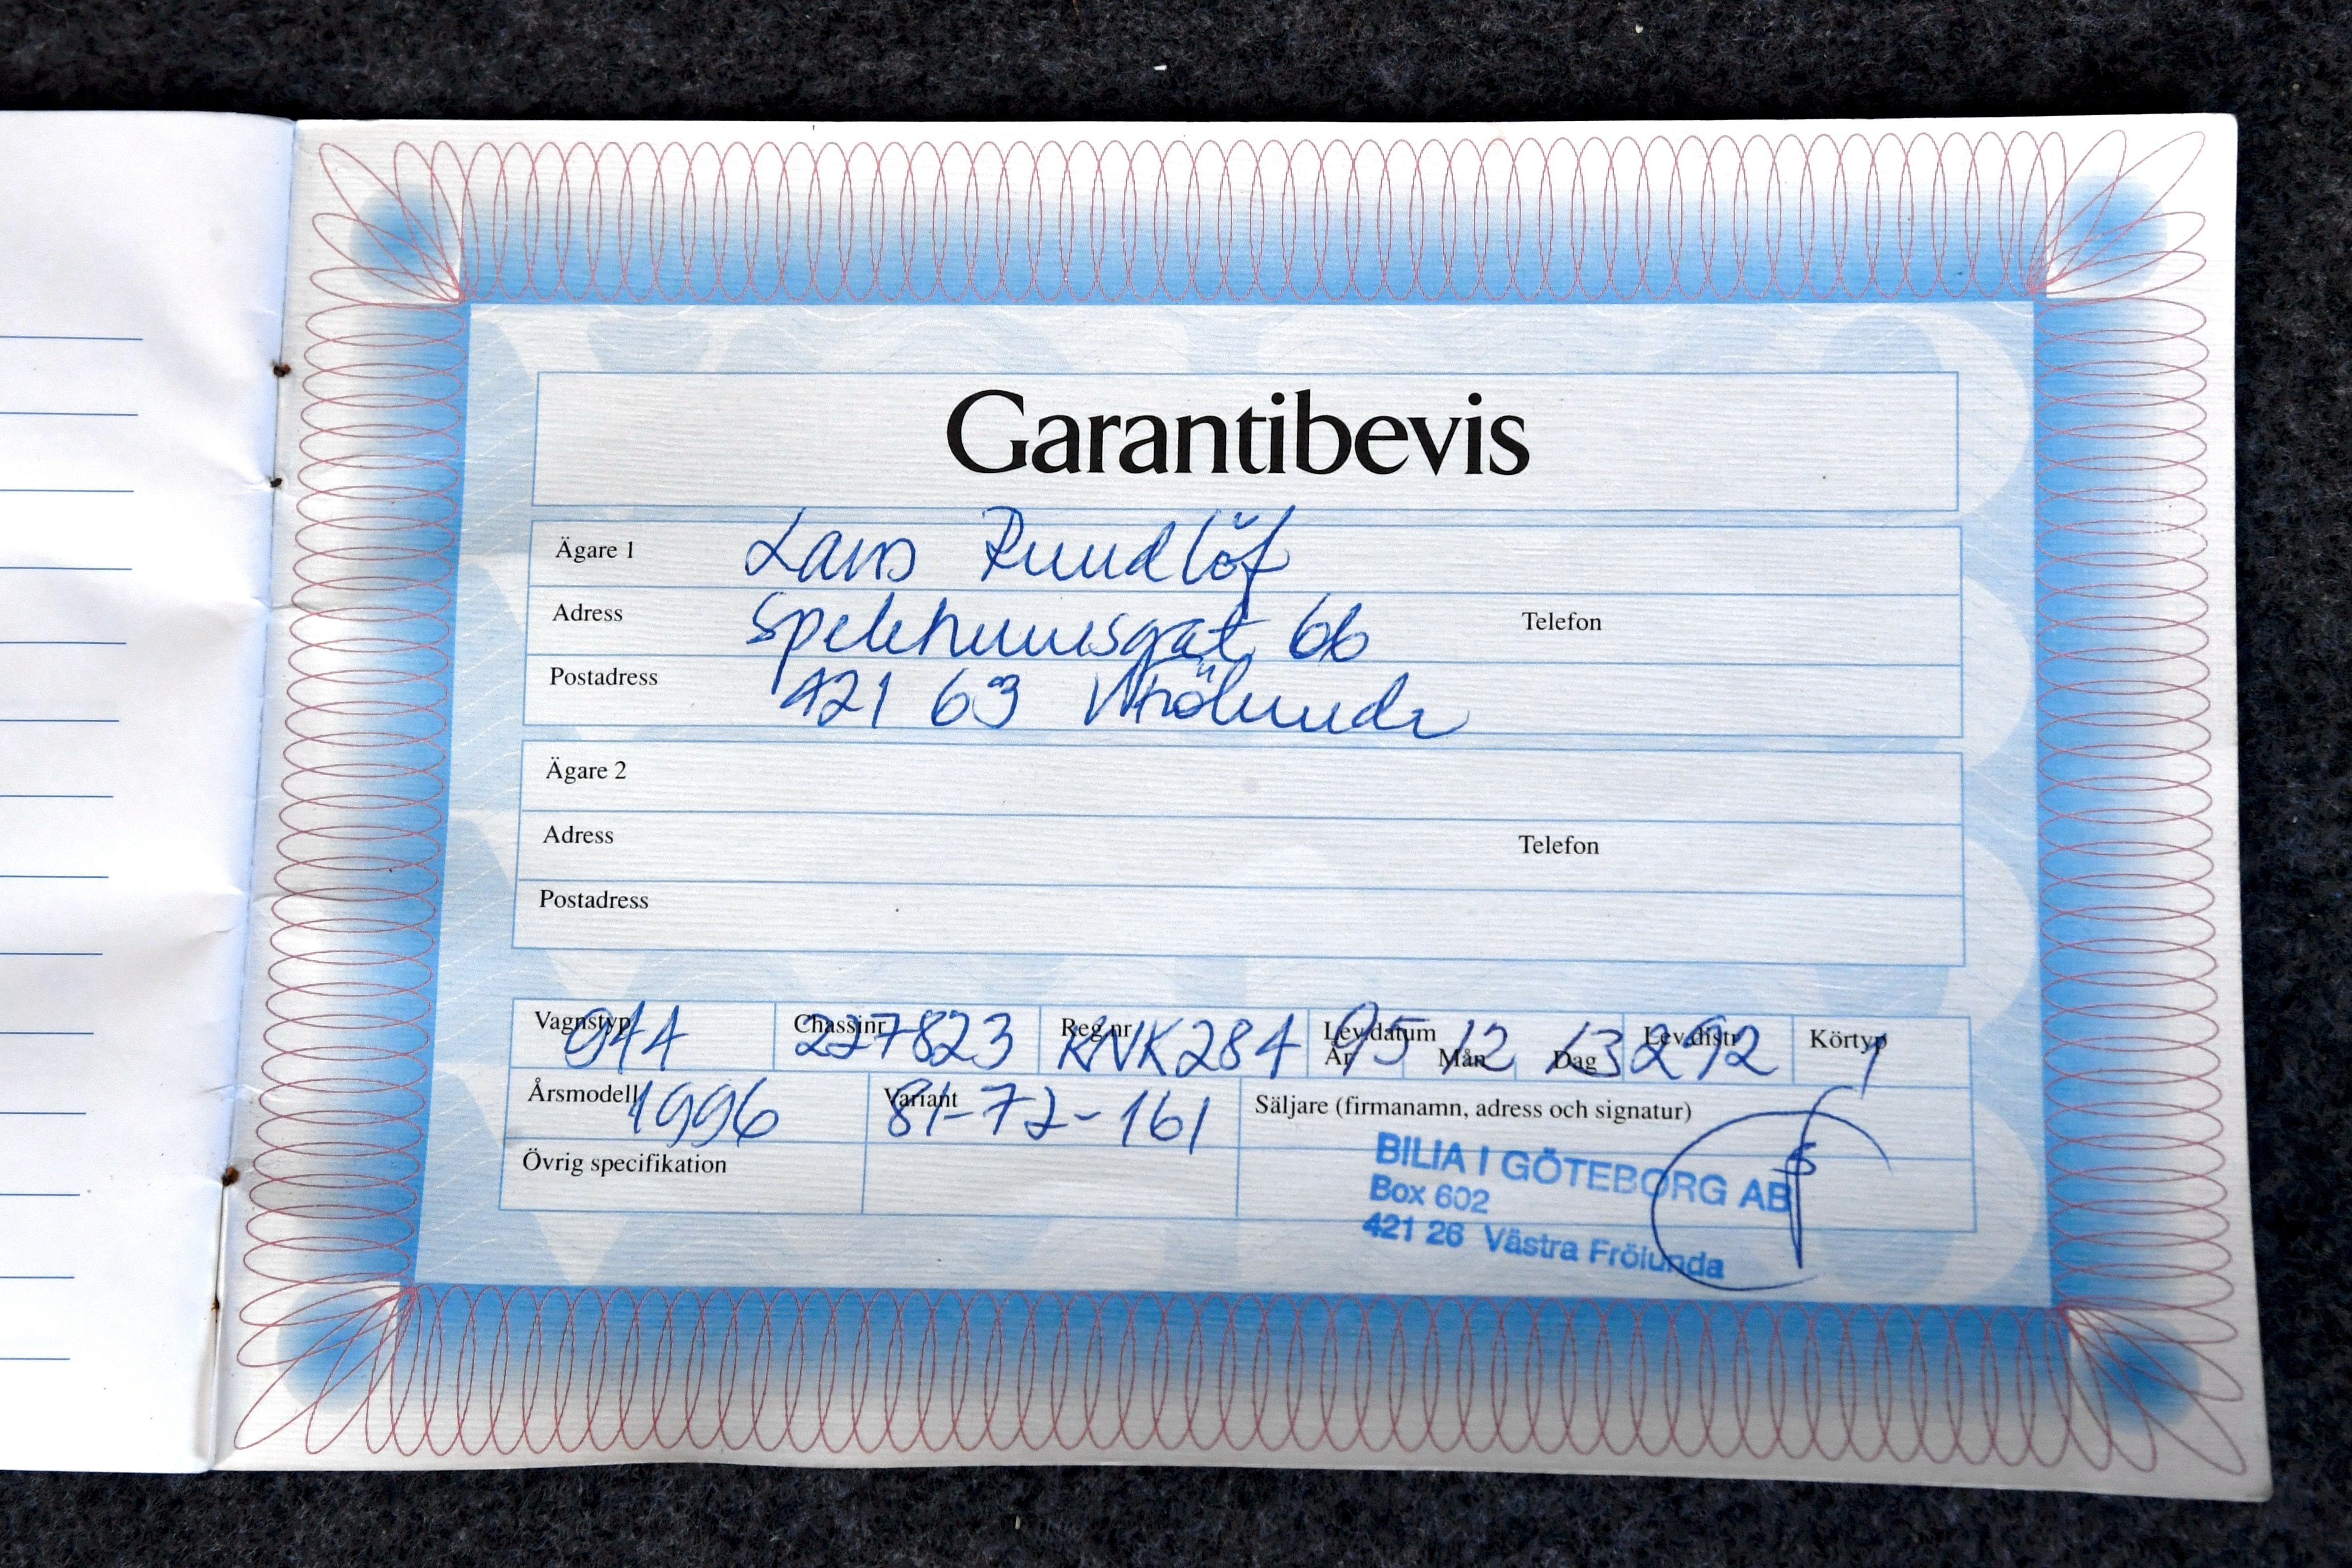 Garantibevis
Ägare 1 Lars Rundlöf
Adress 66 Telefon
Postadress 421 63 V Frölunda
Ägare 2
Adress Telefon
Postadress
Vagnstyp 944 Chassinr 227823 Reg.nr KNK284 Lev.datum År 95 Mån 12 Dag 13 Lev.distr 292 Körtyp 1
Årsmodell 1996 Variant 81-72-161 Säljare (firmanamn, adress och signatur)
Övrig specifikation
BILIA I GÖTEBORG AB
Box 602
421 26 Västra Frölunda